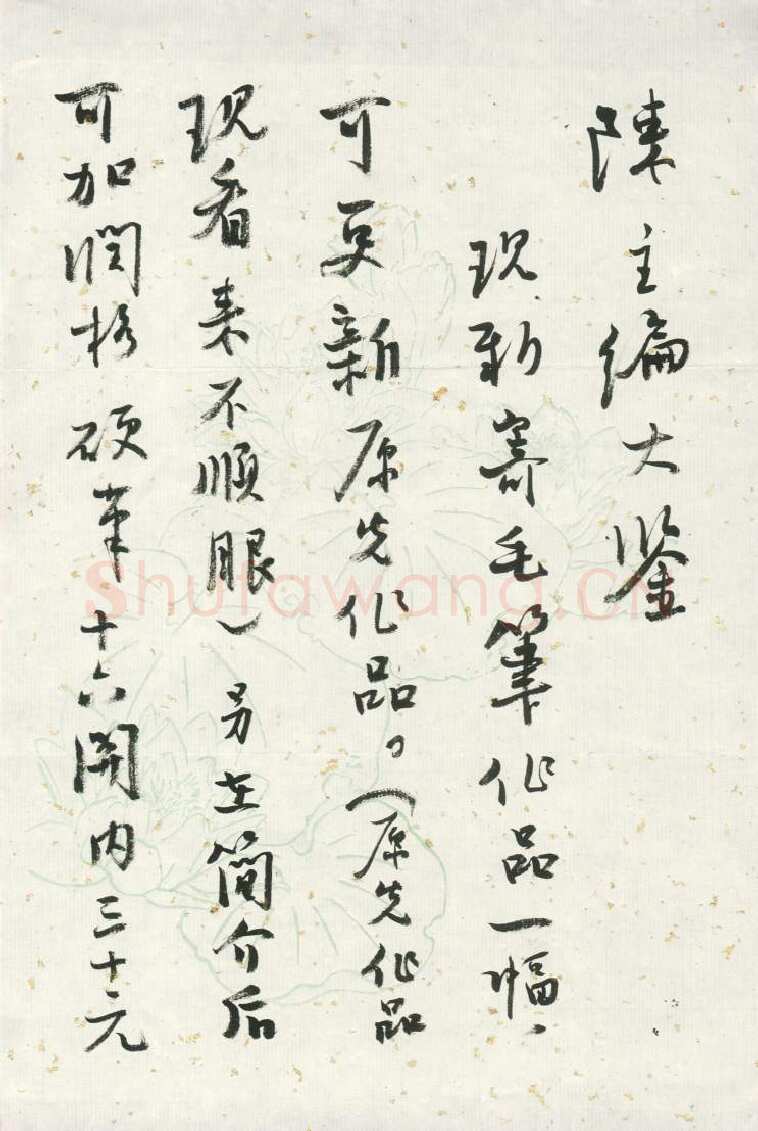 陳主編大鑒
现新寄毛筆作品一幅、
可更新原先作品。(原先作品
现看来不順眼)另在簡介后
可加潤格硬筆十六開内三十元
Shufawang.cn